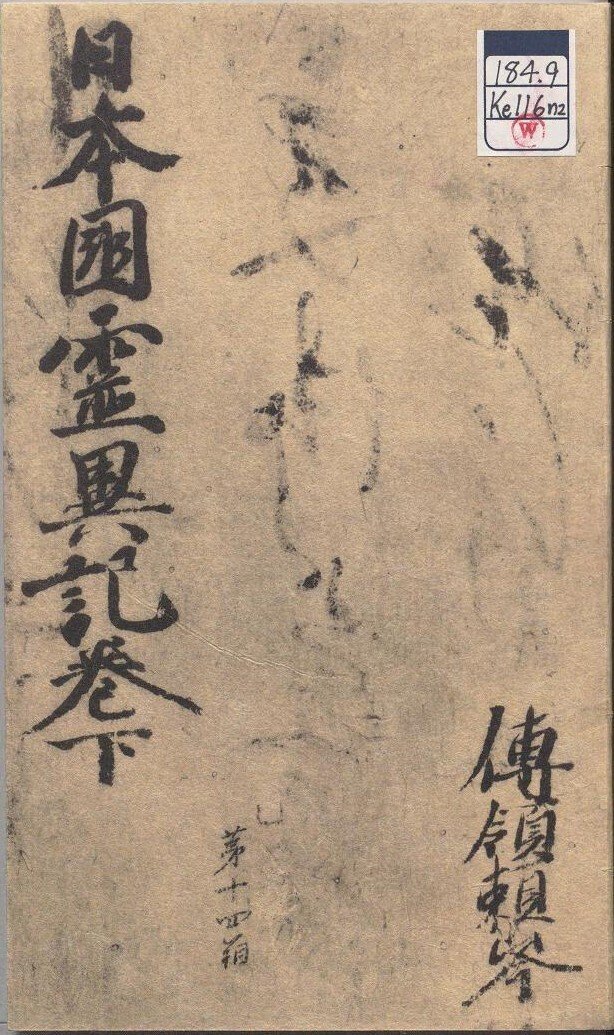 184.9
Ke116n2
W
傳領頼岑
第十四箱
日本國霊異記巻下